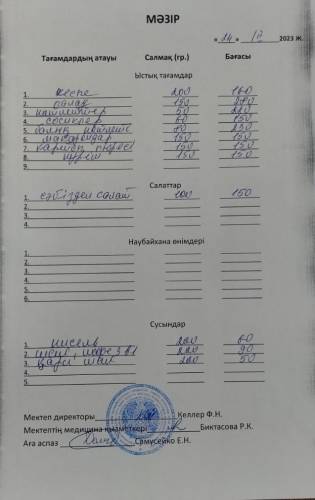 МӘЗІР
« 14 » 2023 Ж.
Тағамдардың атауы Салмақ (гр.) Бағасы
Ыстық тағамдар
1. кеспе 200 160
2. 150
3. 50
4. сосиклер 60 150
5. 80 250
6. макарондар 150 150
7. картоп пюресі 150 150
8. күріш 150 150
9.
Салаттар
1. сәбізден салат 100 150
2.
3.
4.
5.
Наубайхана өнімдері
1.
2.
3.
4.
5.
6.
Сусындар
1. кисель 200 60
2. 200 90
3. қара шай 200 50
4.
5.
Мектеп директоры Келлер Ф.Н.
Мектептің медицина қызметкері Биктасова Р.К.
Аға аспаз Самусейко Е.Н.